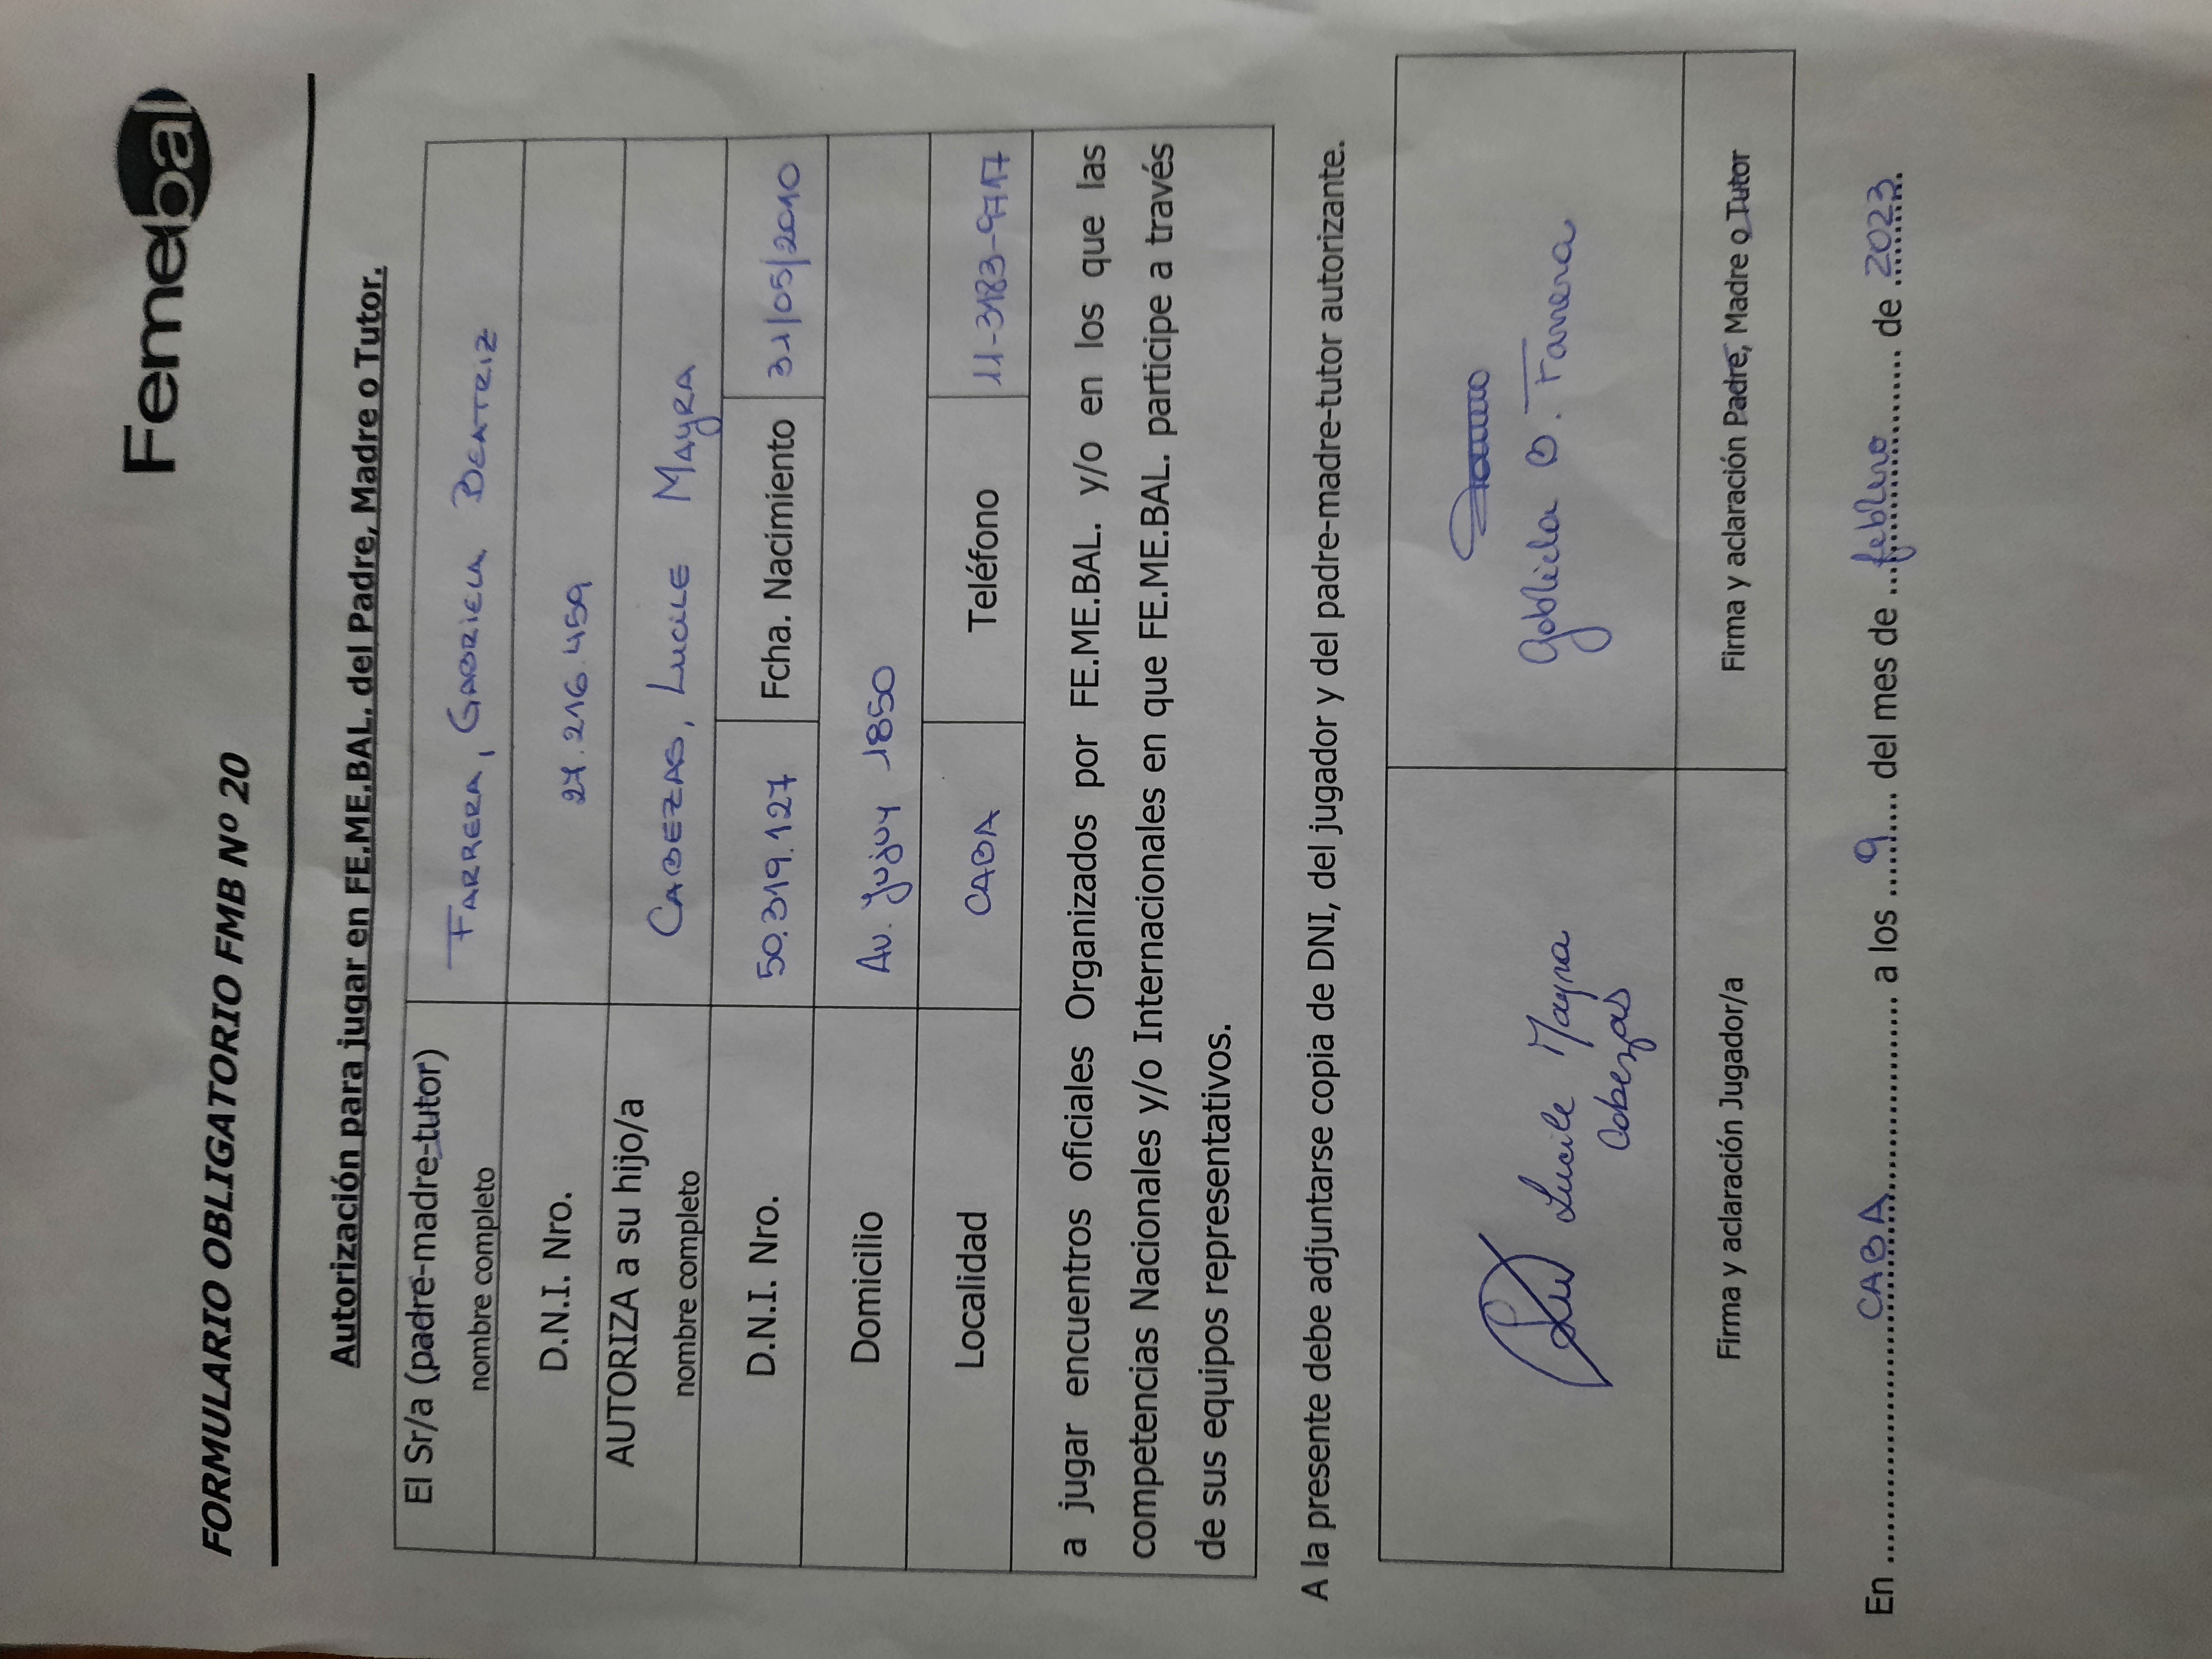 Femebal
FORMULARIO OBLIGATORIO FMB Nº 20
Autorización para jugar en FE.ME.BAL. del Padre, Madre o Tutor.
El Sr/a (padre-madre-tutor) nombre completo FARRERA, GABRIELA BEATRIZ
D.N.I. Nro. 27.216.459
AUTORIZA a su hijo/a nombre completo CABEZAS, LUCILE MAYRA
D.N.I. Nro. 50.319.127 Fcha. Nacimiento 31/05/2010
Domicilio Av. Jujuy 1850
Localidad CABA Teléfono 11-3183-9717
a jugar encuentros oficiales Organizados por FE.ME.BAL. y/o en los que las
competencias Nacionales y/o Internacionales en que FE.ME.BAL. participe a través
de sus equipos representativos.
A la presente debe adjuntarse copia de DNI, del jugador y del padre-madre-tutor autorizante.
Lucile Mayra
Cabezas
Gabriela B. Farrera
Firma y aclaración Jugador/a Firma y aclaración Padre, Madre o Tutor
En CABA a los 9 del mes de febrero de 2023.